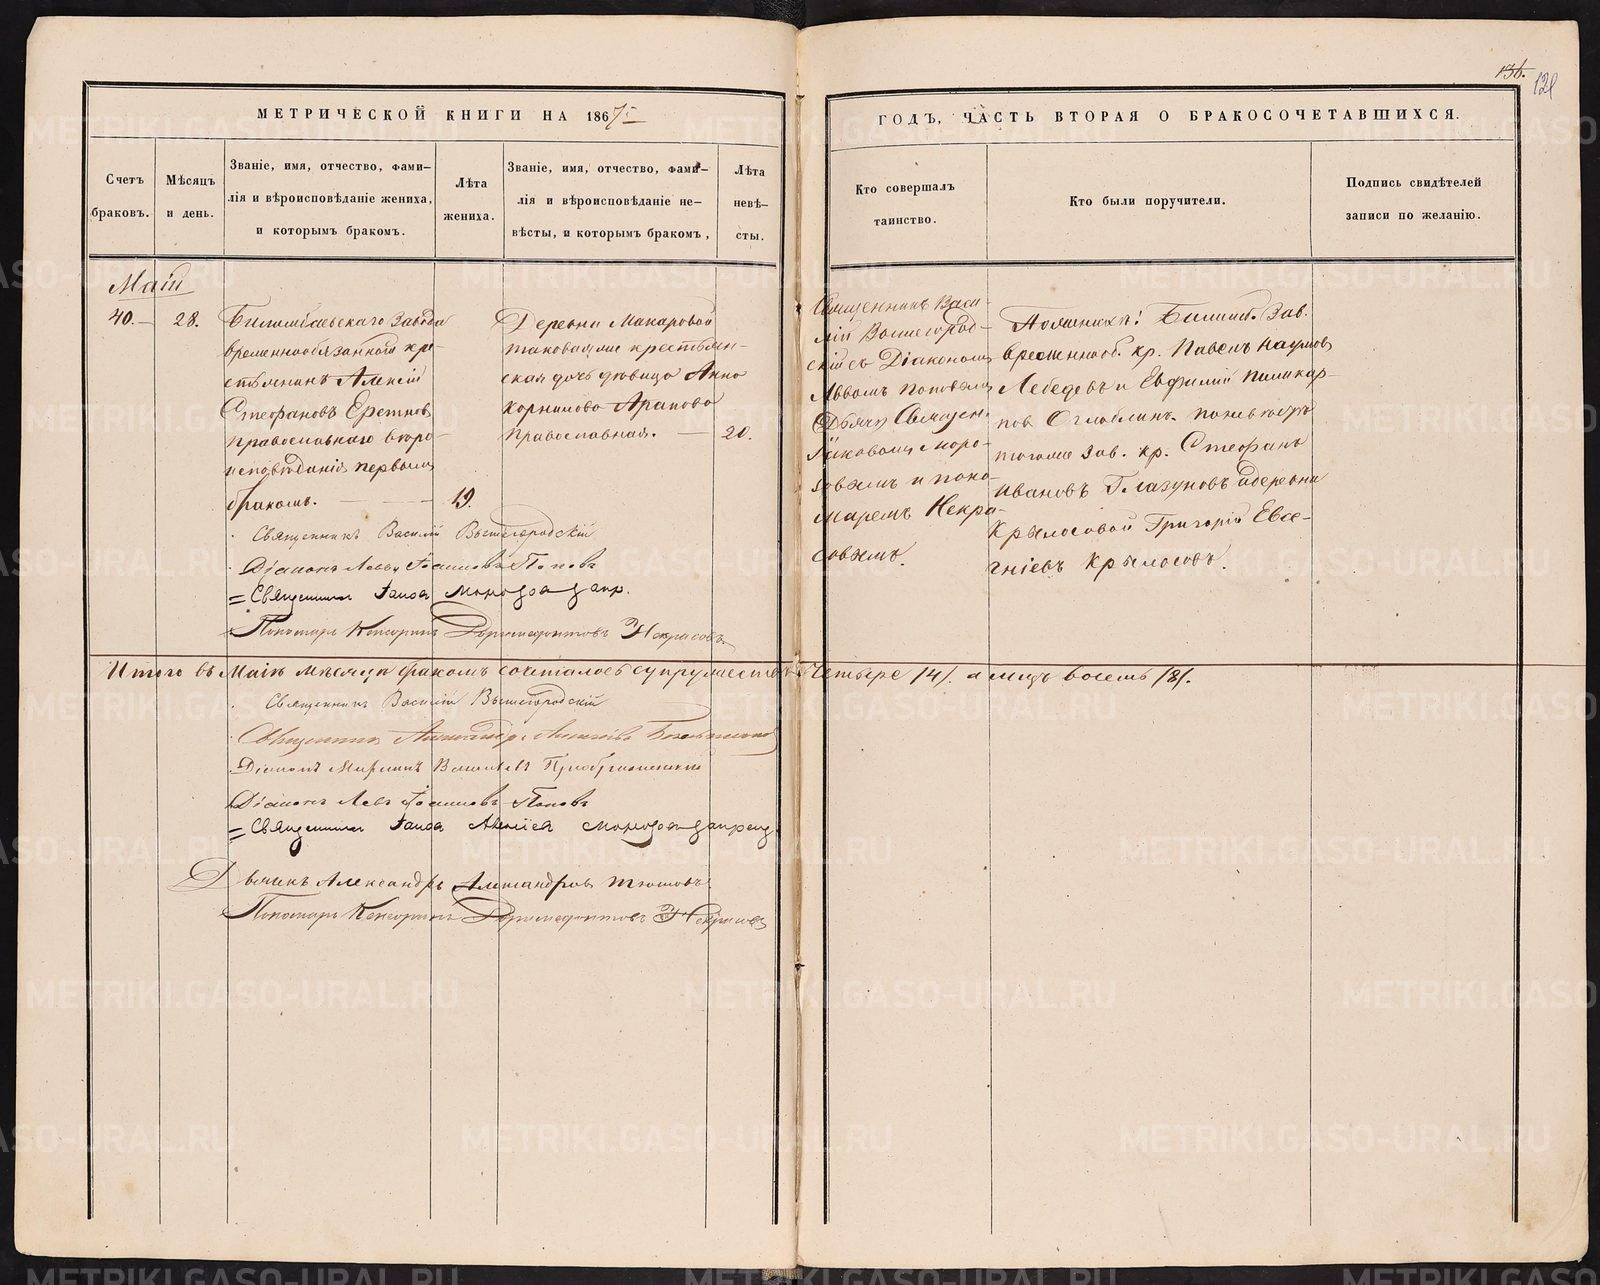 136.
121
МЕТРИЧЕСКОЙ КНИГИ НА 1867
ГОДЪ, ЧАСТЬ ВТОРАЯ О БРАКОСОЧЕТАВШИХСЯ.
Счетъ браковъ.
Мѣсяцъ и день.
Званіе, имя, отчество, фами-
лія и вѣроисповѣданіе жениха,
и которымъ бракомъ.
Лѣта жениха.
Званіе, имя, отчество, фами-
лія и вѣроисповѣданіе не-
вѣсты, и которымъ бракомъ,
Лѣта невѣ-
сты.
Кто совершалъ
таинство.
Кто были поручители.
Подпись свидѣтелей
записи по желанію.
Маій
40.
28.
Билимбаевскаго завода
временнообязанной кре-
стьянинъ Алексій
Стефановъ Еретновъ
православнаго вѣро-
исповѣданія первымъ
бракомъ.
19.
Деревни Макаровой
таковаго же крестьян-
ская дочь дѣвица Анна
Корнилова Арапова
православная.
20.
Священникъ Васи-
лій Вышегород-
скій съ Діакономъ
Львомъ Поповымъ
и поно-
маремъ Некра-
совымъ.
Билимб. зав.
временнооб. кр. Павелъ Наумовъ
Лебедевъ и Евфимій Поликар-
повъ Оглоблинъ по невѣстѣ
тогоже зав. кр. Стефанъ
Ивановъ Глазуновъ и деревни
Крылосовой Григорій Евсе-
гніевъ Крылосовъ.
Священникъ Василій Вышегородскій
Діаконъ Левъ Іоанновъ Поповъ
Пономарь Кенсоринъ Доримедонтовъ Некрасовъ
Итого въ Маіѣ мѣсяцѣ бракомъ сочеталось супружествъ четыре /4/. а лицъ восемь /8/.
Священникъ Василій Вышегородскій
Священникъ Александръ
Діаконъ
Діаконъ Левъ Іоанновъ Поповъ
Дьячикъ Александръ Александровъ
Пономарь Кенсоринъ Доримедонтовъ Некрасовъ
METRIKI.GASO-URAL.RU